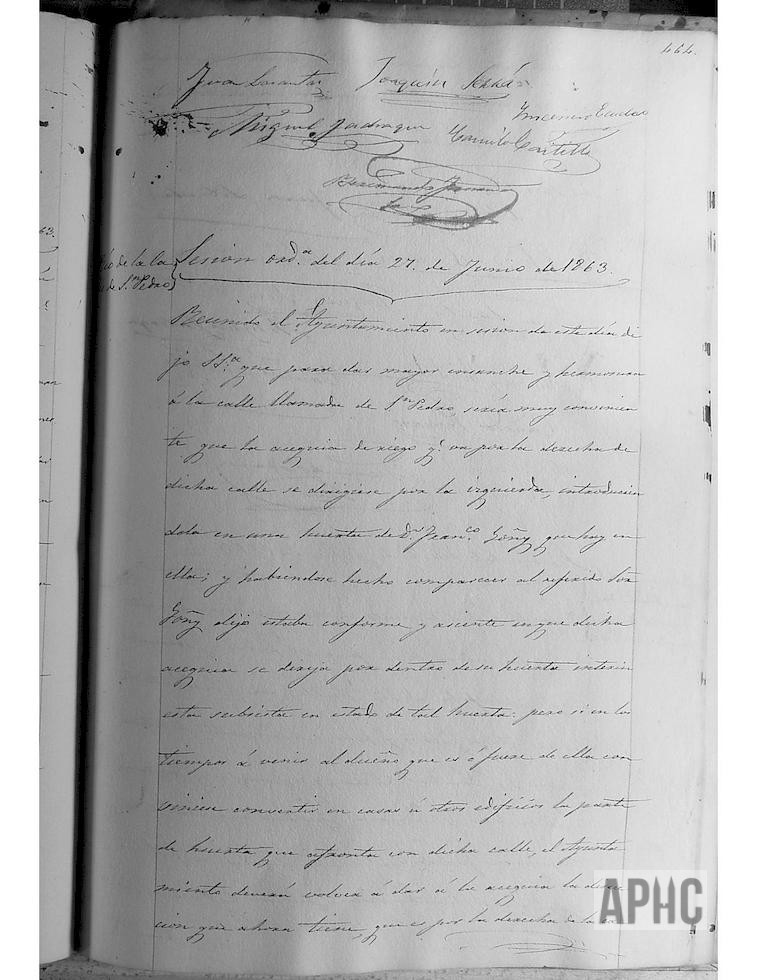 464.
Juan Joaquín Serrá
Miguel Jadraque Camilo Castilla
Sesion ord.ª del día 27. de Junio de 1863.
de la ca
de S.n Pedro
Reunido el Ayuntamiento en sesion de este día di
jo SS.ª que para dar mayor ensanche y hermosura
á la calle llamada de S.n Pedro, sería muy convenien
te que la acequia de riego q.e va por la derecha de
dicha calle se dirigiese por la izquierda, introducien
dola en una huerta de D.n Fran.co Goñy que hay en
ella; y habiendose hecho comparecer al referido Sor.
Goñy dijo estaba conforme y asiente en que dicha
acequia se dirija por dentro de su huerta interin
esta subsista en estado de tal huerta: pero si en los
tiempos á venir al dueño que es ó fuese de ella con
viniese convertir en casas ú otros edificios la parte
de huerta que afronta con dicha calle, el Ayunta
miento deverá volver á dar á la acequia la direc
cion que ahora tiene, que es por la derecha de la ca
APHC